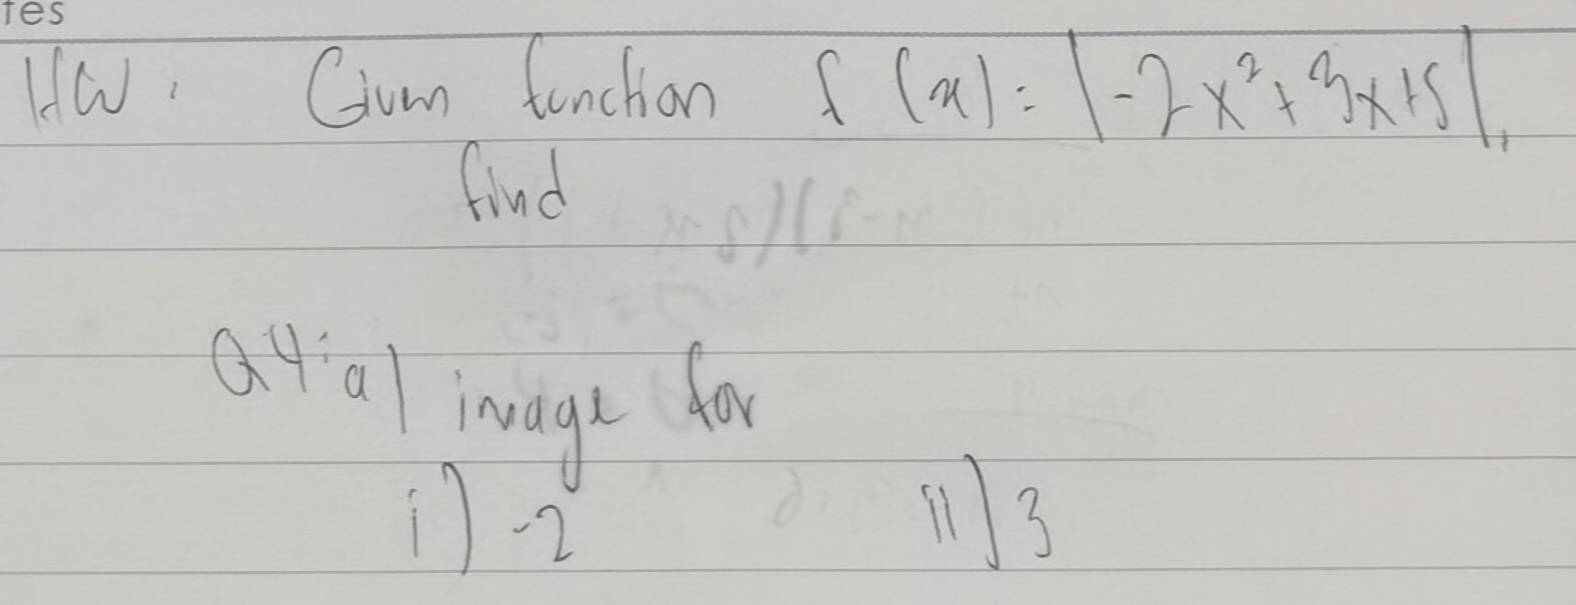 tes
HW: Given function f(x) = |-2x² + 3x + 5|,
find
Q4: a) image for
i) -2 ii) 3